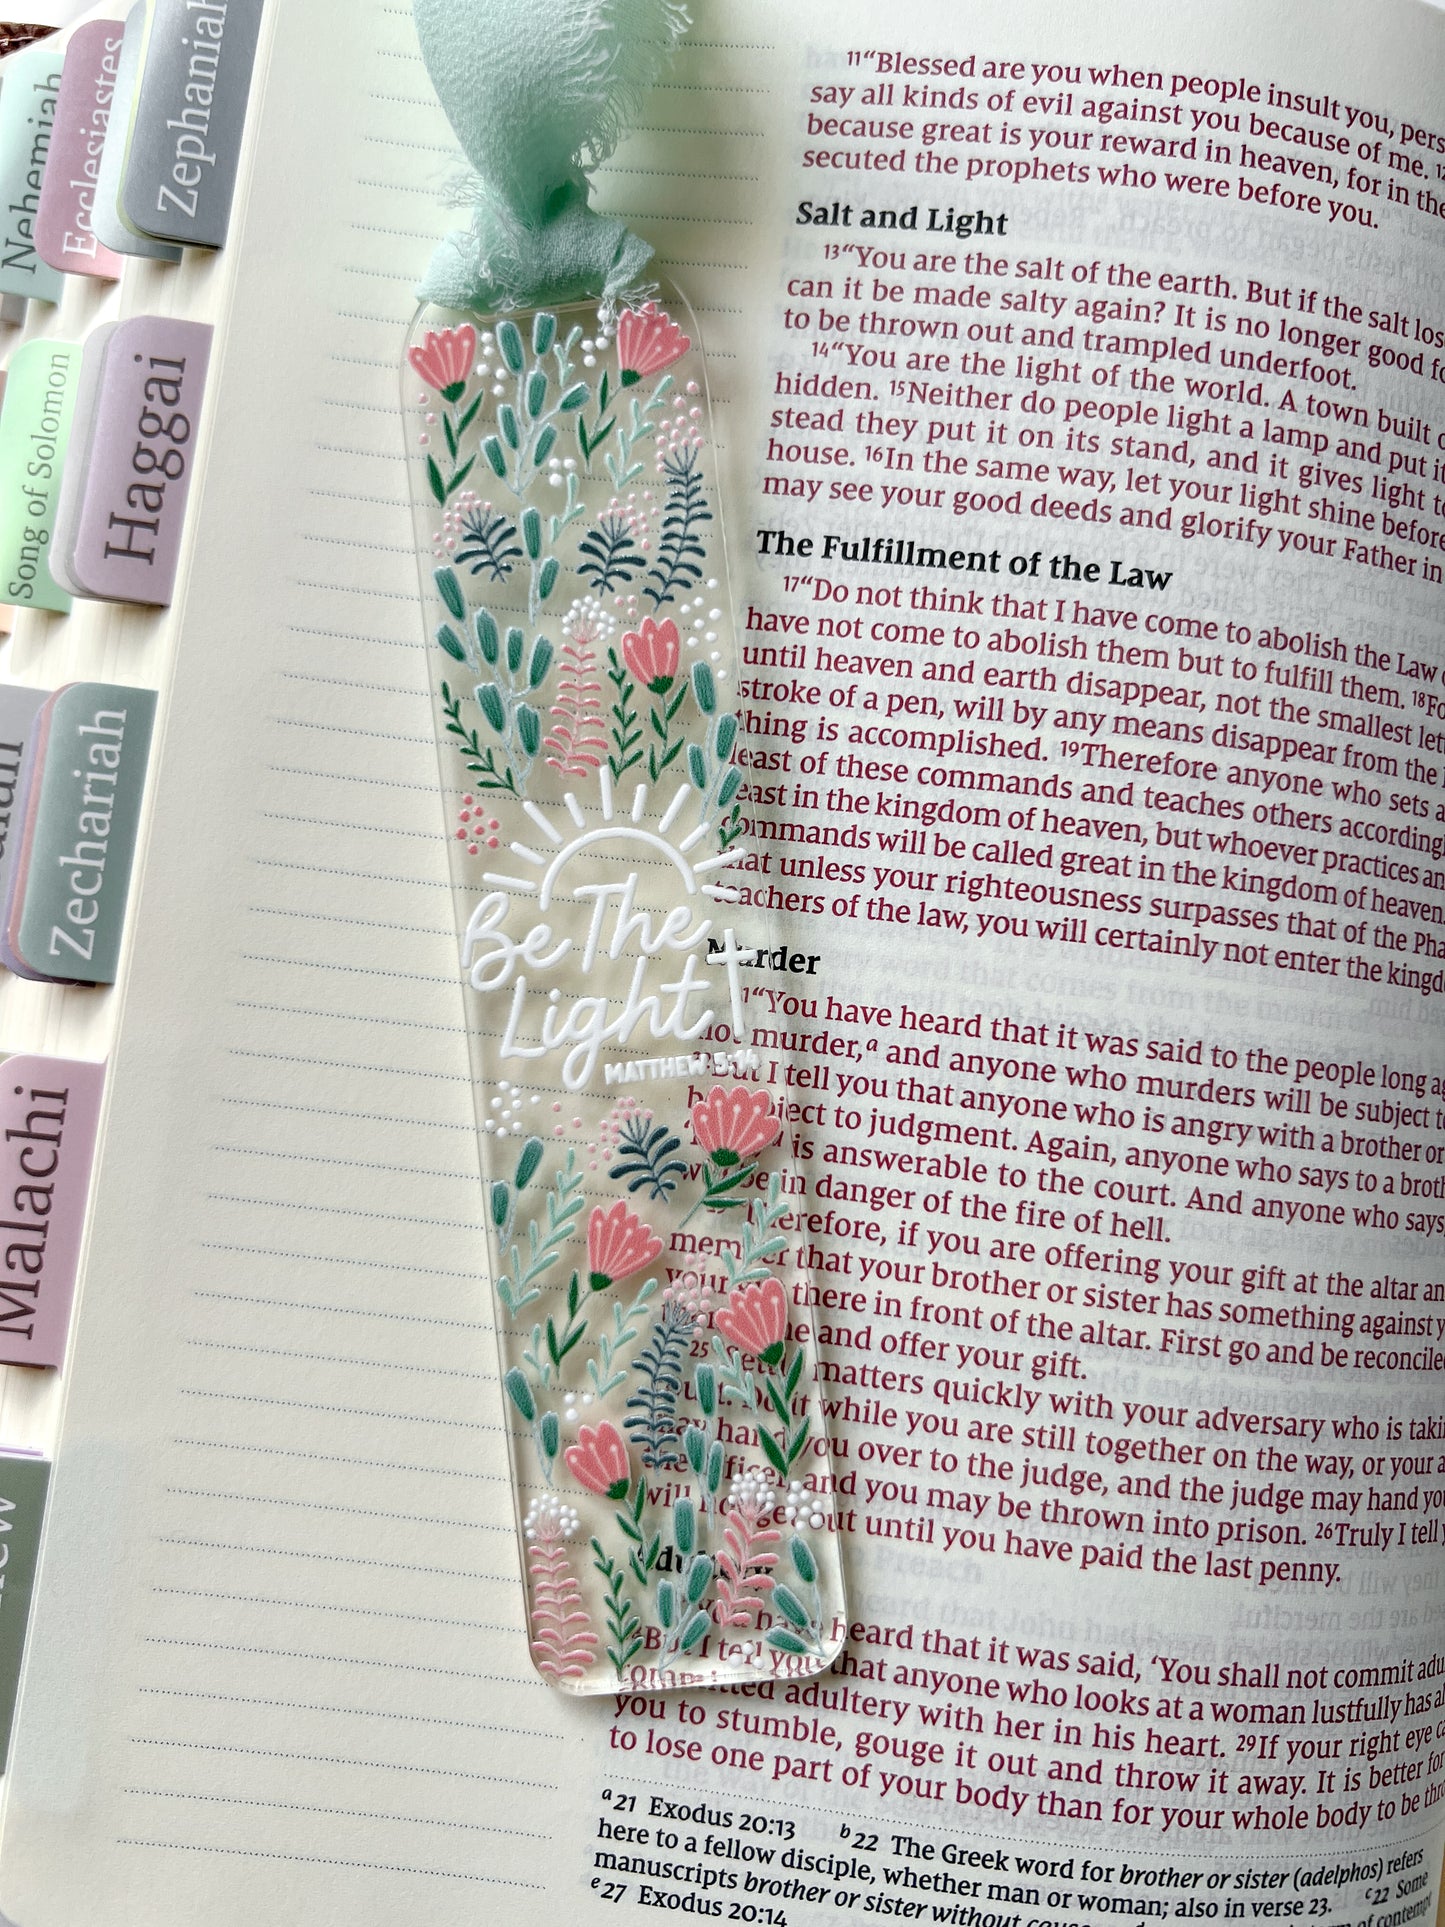 Nehemiah
Ecclesiastes
Zephaniah
Song of Solomon
Haggai
Zechariah
Malachi
Be The
Light
MATTHEW 5:14
11“Blessed are you when people insult you,
say all kinds of evil against you because of me.
because great is your reward in heaven, for in the
secuted the prophets who were before you.
Salt and Light
13“You are the salt of the earth. But if the salt
can it be made salty again? It is no longer good
to be thrown out and trampled underfoot.
14“You are the light of the world. A town built
hidden. 15Neither do people light a lamp and put it
stead they put it on its stand, and it gives light
house. 16In the same way, let your light shine before
may see your good deeds and glorify your Father in
The Fulfillment of the Law
17“Do not think that I have come to abolish the Law
have not come to abolish them but to fulfill them.
until heaven and earth disappear, not the smallest
stroke of a pen, will by any means disappear from the
thing is accomplished. 19Therefore anyone who sets
least of these commands and teaches others
east in the kingdom of heaven, but whoever practices
commands will be called great in the kingdom of heaven.
that unless your righteousness surpasses that of the
teachers of the law, you will certainly not enter the
Murder
“You have heard that it was said to the people long
not murder,a and anyone who murders will be subject
But I tell you that anyone who is angry with a brother or
subject to judgment. Again, anyone who says to a
is answerable to the court. And anyone who says,
be in danger of the fire of hell.
Therefore, if you are offering your gift at the altar
member that your brother or sister has something against
your there in front of the altar. First go and be
and offer your gift.
25 matters quickly with your adversary who is
it while you are still together on the way, or your
hand you over to the judge, and the judge may hand
and you may be thrown into prison. 26Truly I tell
will not get out until you have paid the last penny.
Adultery
you have heard that it was said, ‘You shall not commit
But I tell you that anyone who looks at a woman lustfully has
committed adultery with her in his heart. 29If your right eye
you to stumble, gouge it out and throw it away. It is better for
to lose one part of your body than for your whole body to be
a21 Exodus 20:13 b22 The Greek word for brother or sister (adelphos) refers
here to a fellow disciple, whether man or woman; also in verse 23. c22 Some
manuscripts brother or sister without of
e27 Exodus 20:14